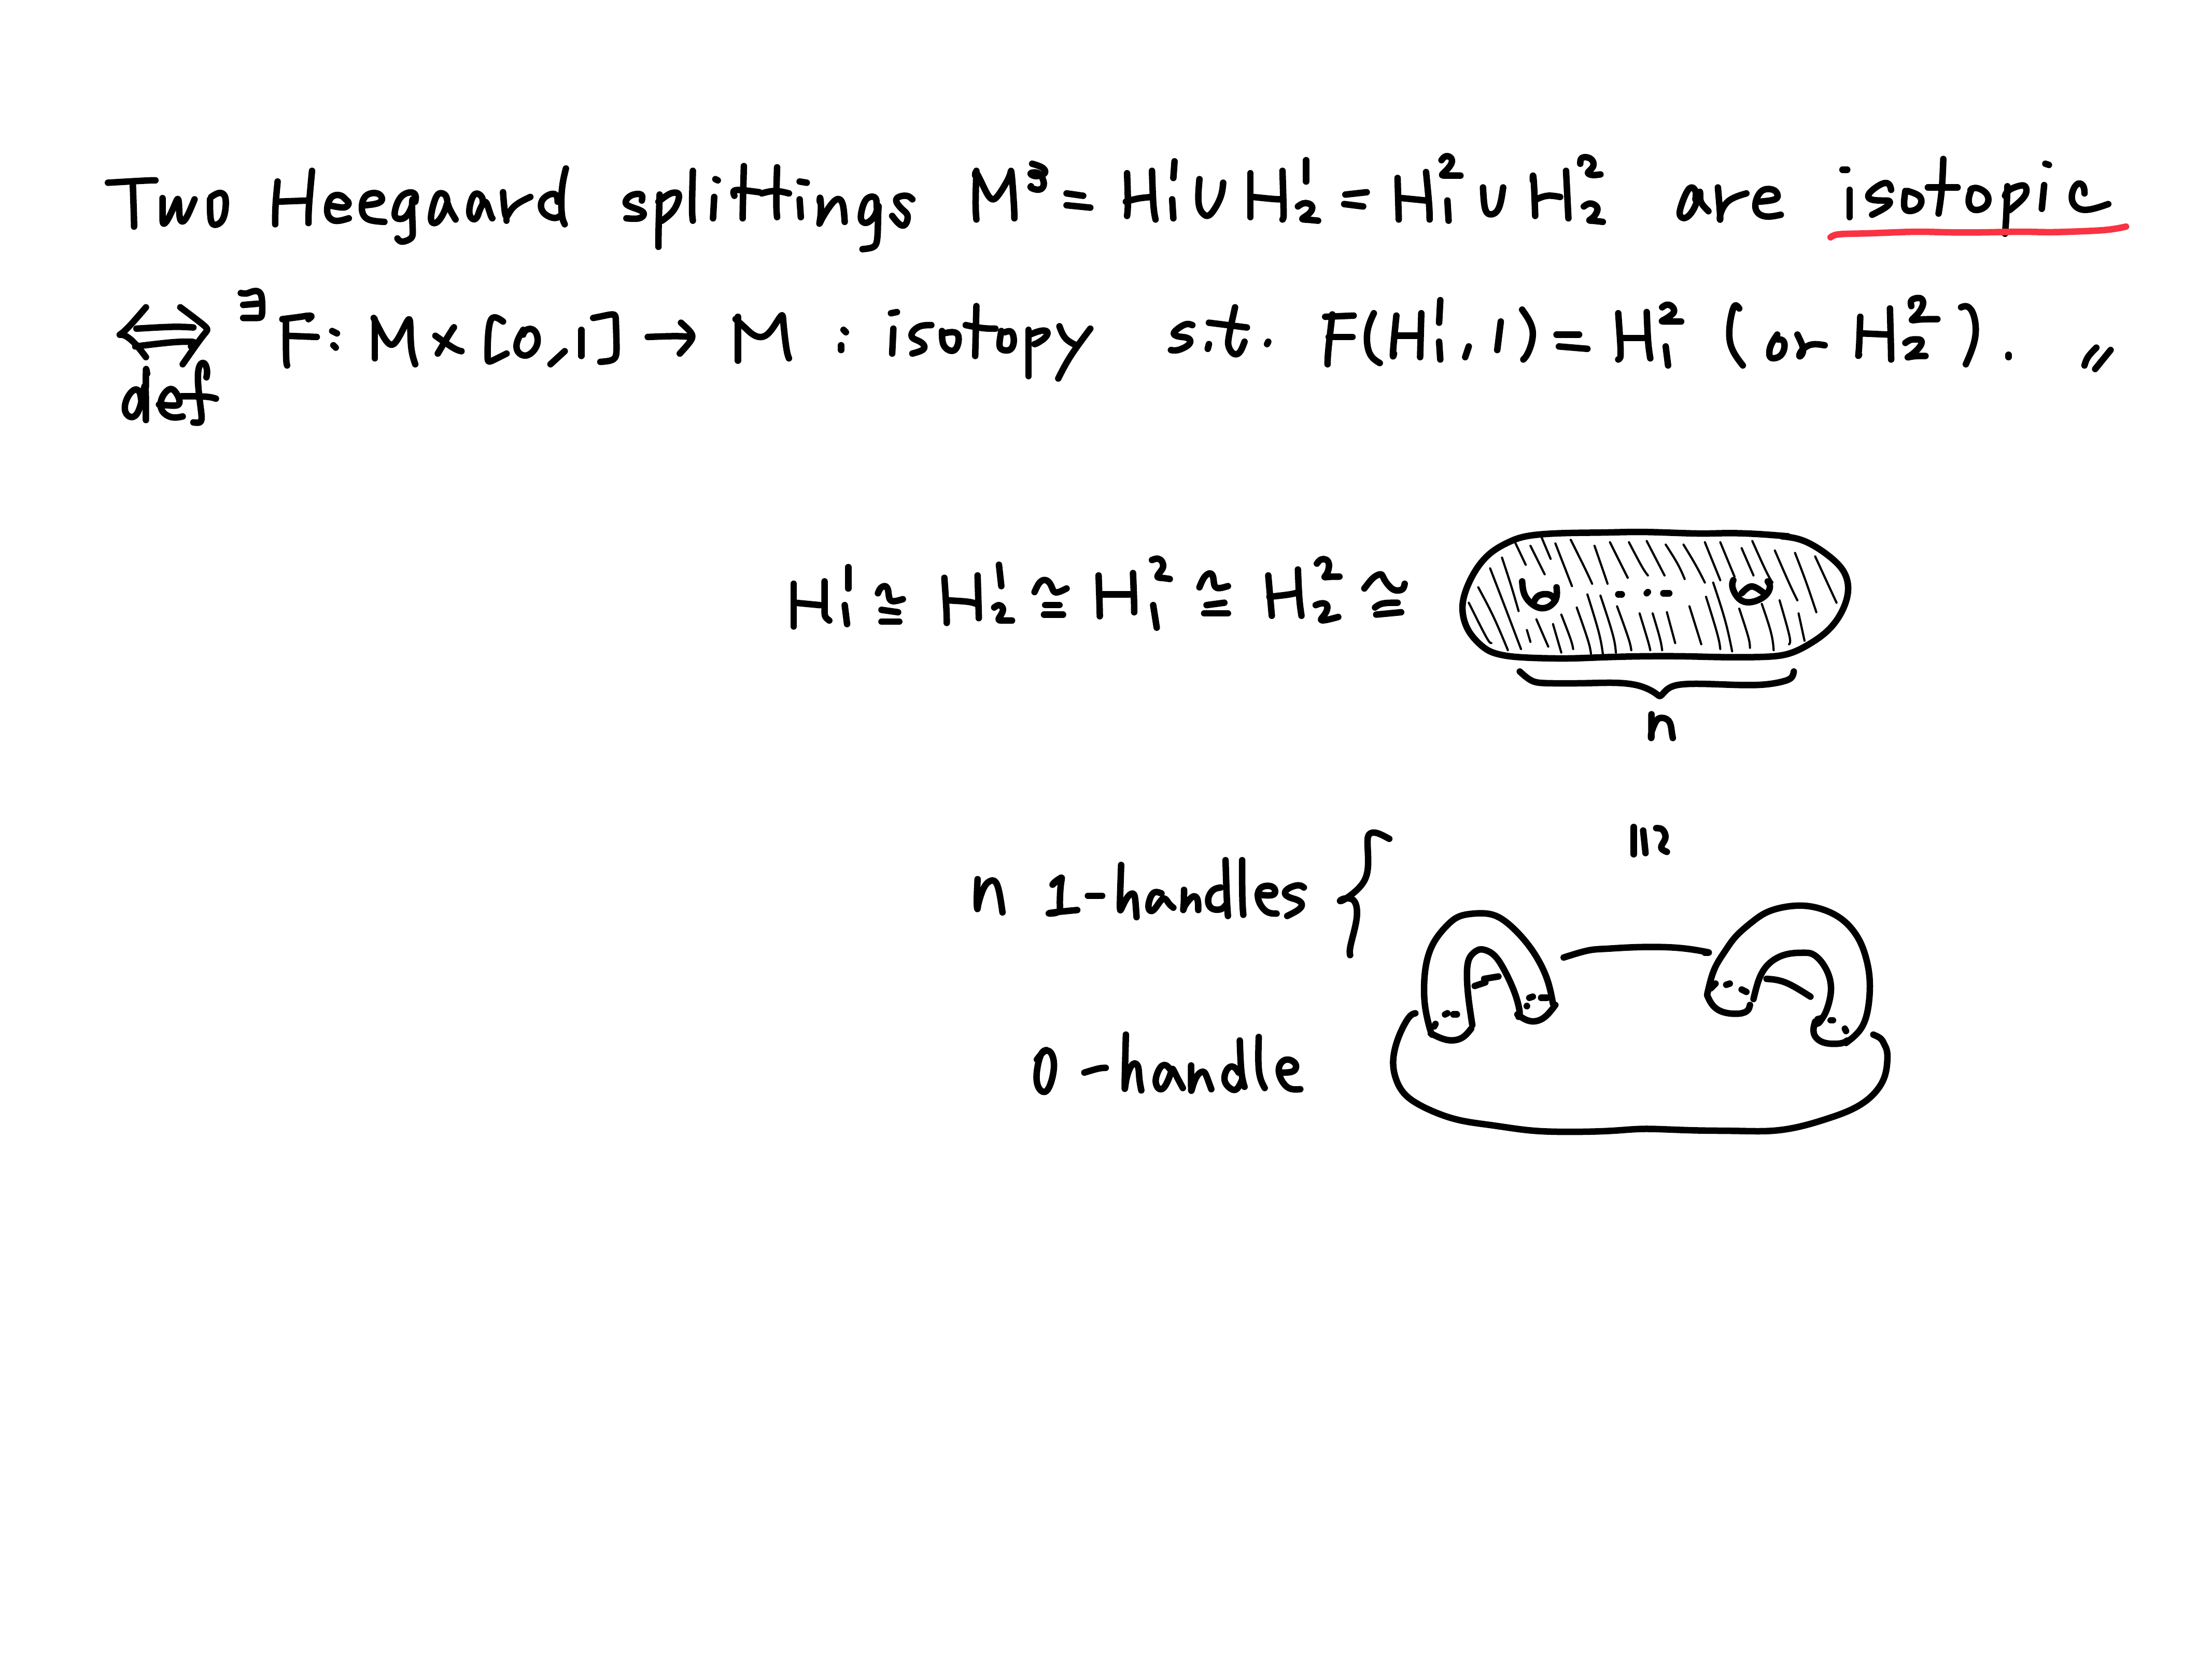 Two Heegaard splittings M³ = H₁¹ ∪ H₂¹ = H₁² ∪ H₂² are isotopic
⟺ def ∃F: M × [0,1] → M : isotopy s.t. F(H₁¹, 1) = H₁² (or H₂²). 〃
H₁¹ ≅ H₂¹ ≅ H₁² ≅ H₂² ≅
n
≅
n 1-handles {
0-handle